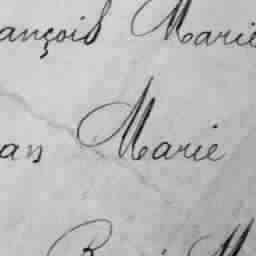 ançois Marie
an Marie